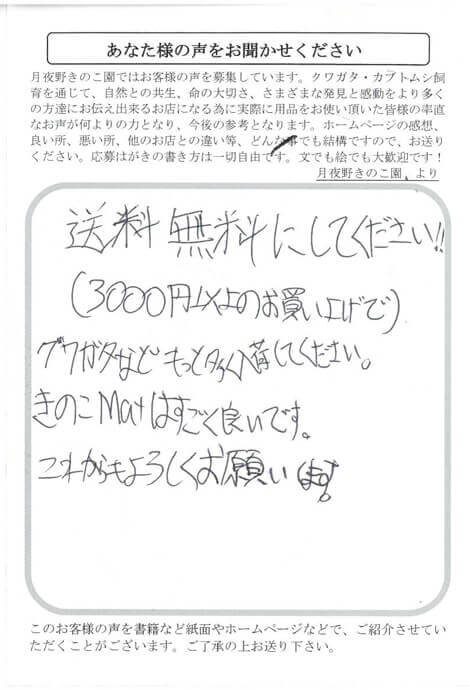 あなた様の声をお聞かせください
月夜野きのこ園ではお客様の声を募集しています。クワガタ・カブトムシ飼
育を通じて、自然との共生、命の大切さ、さまざまな発見と感動をより多く
の方達にお伝え出来るお店になる為に実際に用品をお使い頂いた皆様の率直
なお声が何よりの力となり、今後の参考となります。ホームページの感想、
良い所、悪い所、他のお店との違い等、どんな事でも結構ですので、お送り
ください。応募はがきの書き方は一切自由です。文でも絵でも大歓迎です！
月夜野きのこ園 より
送料無料にしてください!!
(3000円以上のお買い上げで)
グワガタなどもっと多く入荷してください。
きのこMatはすごく良いです。
これからもよろしくお願いします。
このお客様の声を書籍など紙面やホームページなどで、ご紹介させてい
ただくことがございます。ご了承の上お送り下さい。